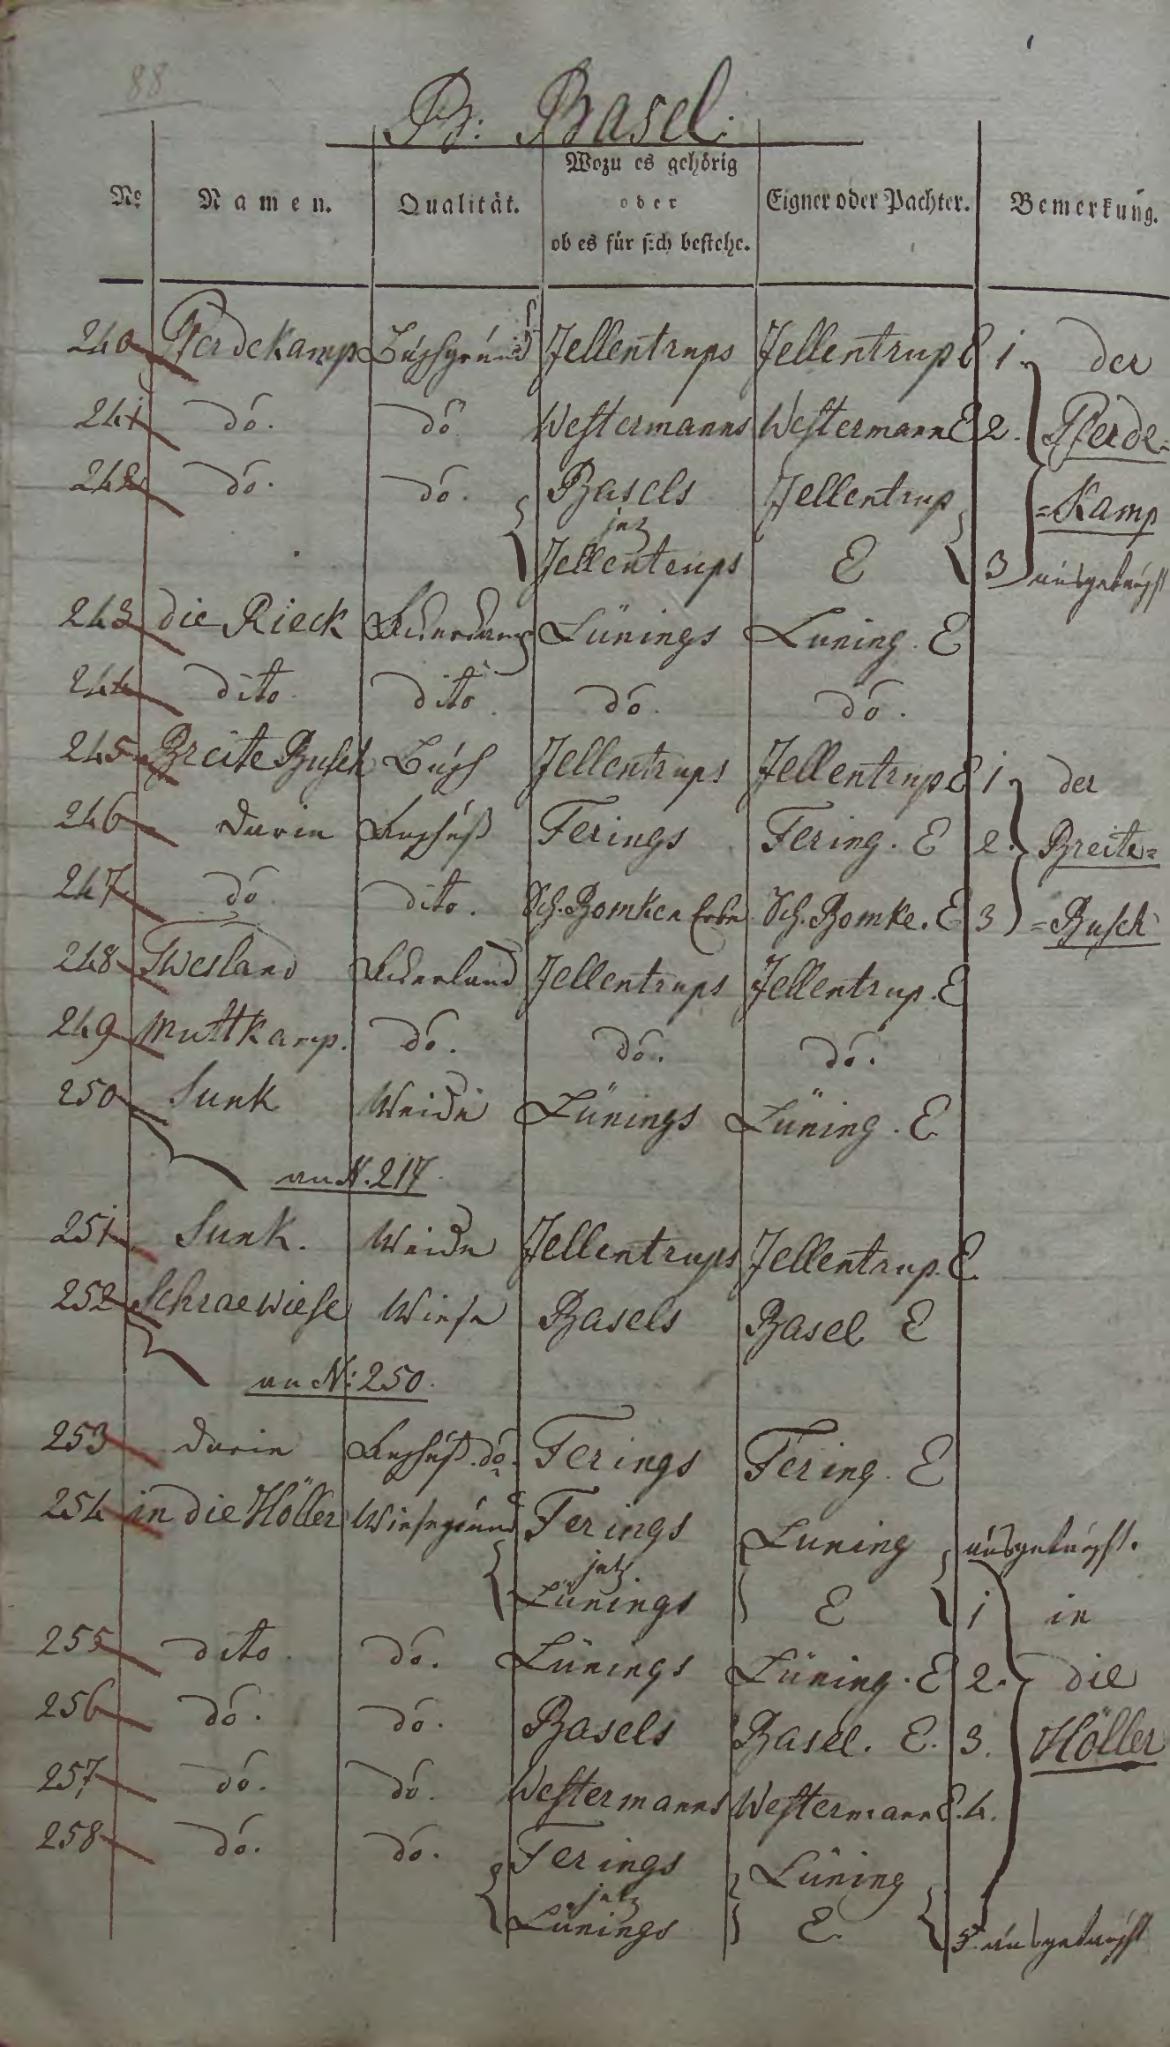 88
B: Basel.
No Namen. Qualität. Wozu es gehörig oder ob es für sich bestehe. Eigner oder Pachter. Bemerkung.
240 Pferdekamp Buschgrund Jellentrups Jellentrup E 1. der
241 do. do Westermanns Westermann E 2. Pferde=
242 do. do. Basels Jellentrup =Kamp
jetz
Jellentrups E 3 ausgetauscht
243 die Rieck Lünings Luning. E
244 dito dito do. do.
245 Breite Busch Busch Jellentrups Jellentrup E 1 der
246 darin Ferings Fering. E 2. Breite=
247 do dito. Sch. Bomken Erbe Sch. Bomke. E 3 =Busch
248 Twesland Ackerland Jellentrups Jellentrup. E
249 Muttkamp. do. do. do.
250 Sunk Weide Lünings Lüning. E
an N. 217
251 Sunk. Weide Jellentrups Jellentrup. E.
252 Schraewiese Wiese Basels Basel E
an N: 250.
253 darin do. Ferings Fering. E
254 in die Höller Wiesegrund Ferings Luning ausgetauscht.
jetz
Lünings E 1 in
255 dito do. Lünings Lüning. E 2. die
256 do. do. Basels Basel. E. 3. Höller
257 do. do. Westermanns Westermann E. 4.
258 do. do. Ferings Lüning
jetz
Lünings E. 5. ausgetauscht